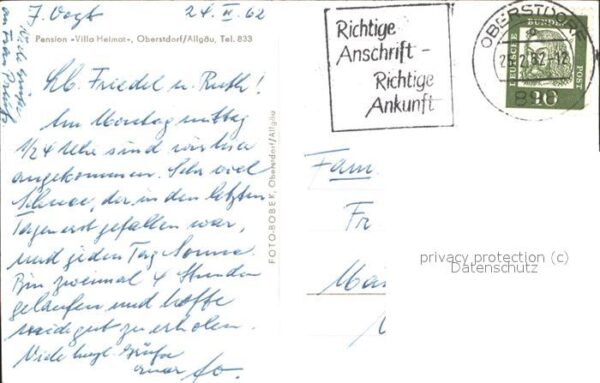 J. Vogt 24. II. 62
Pension »Villa Heimat«, Oberstdorf/Allgäu, Tel. 833
Viele Grüße
an Frau
Lb. Friedel u. Ruth!
Am Montag mittag
1/2 4 Uhr sind wir hier
angekommen. Sehr viel
Schnee, der in den letzten
Tagen erst gefallen war,
und jeden Tag Sonne.
Bin zweimal 4 Stunden
gelaufen und hoffe
mich gut zu erholen.
Viele herzl. Grüße
FOTO-BOBEK, Oberstdorf/Allgäu
Richtige
Anschrift -
Richtige
Ankunft
OBERSTDORF
DEUTSCHE BUNDESPOST
10
Fam.
Fr
privacy protection (c)
Datenschutz